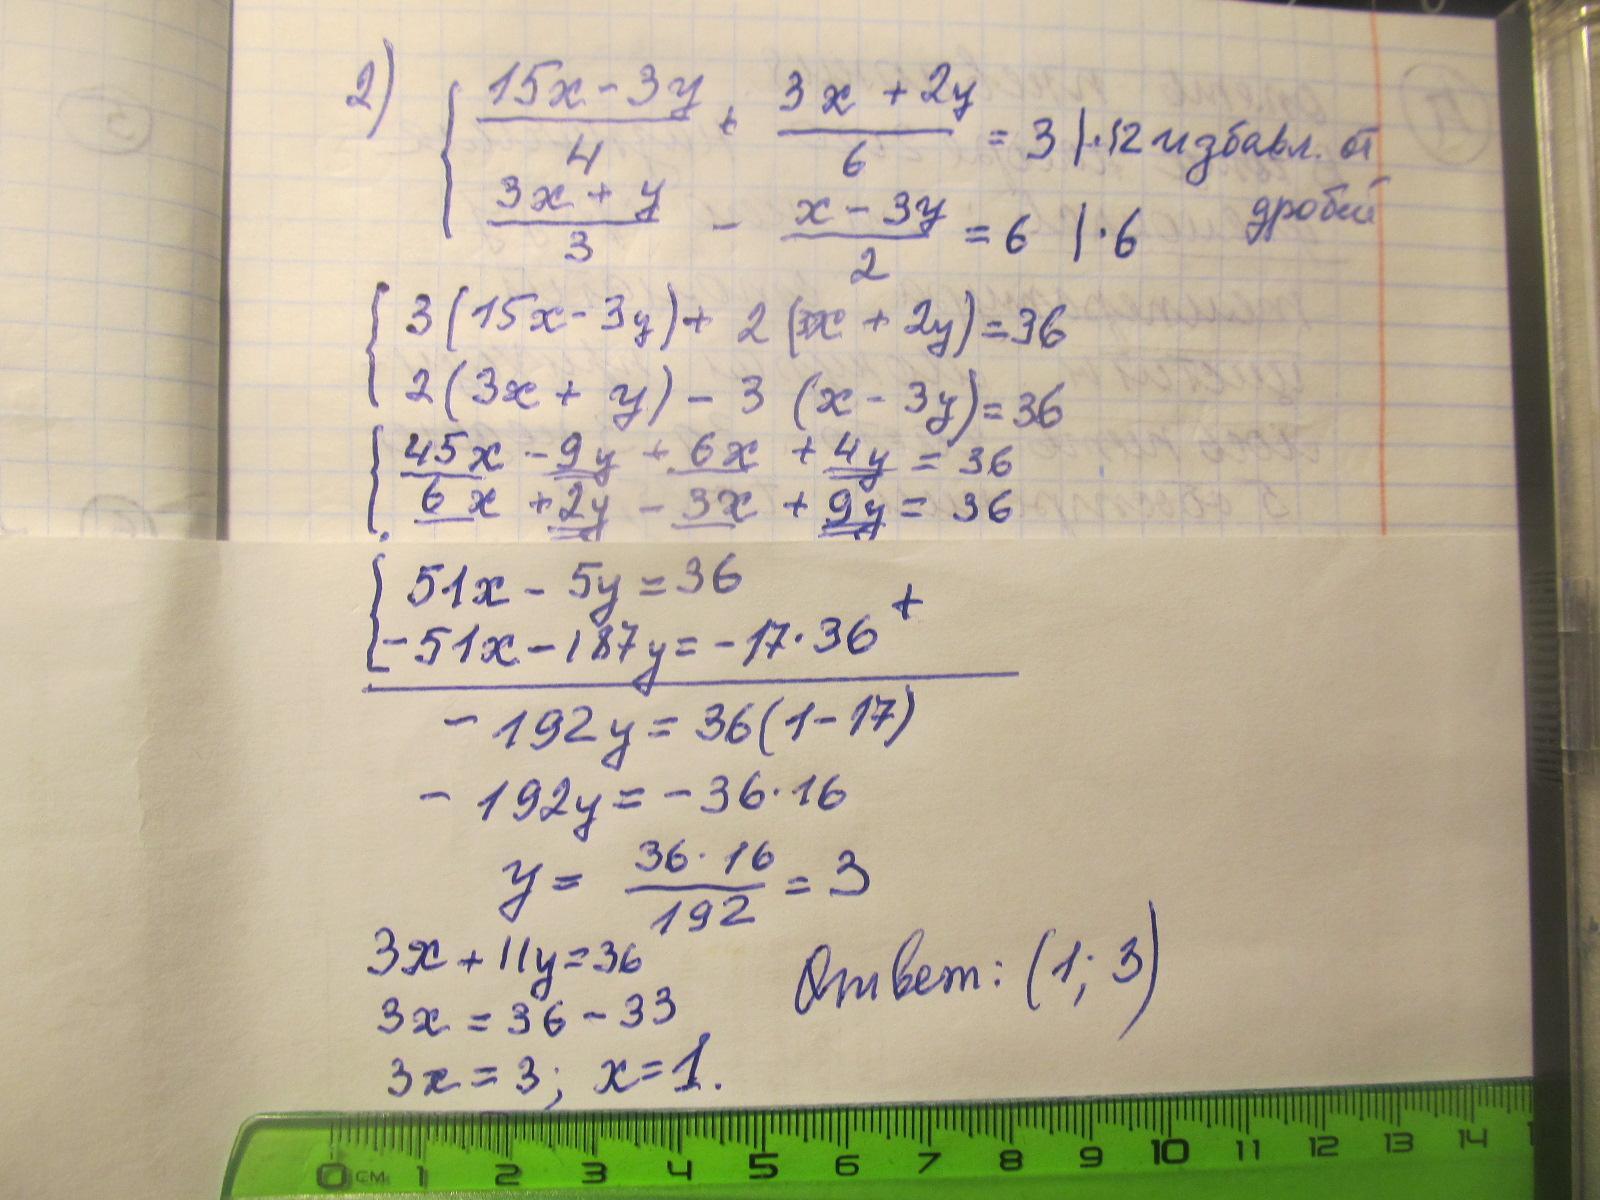 2) { (15x - 3y)/4 + (3x + 2y)/6 = 3 | · 12 избавл. от дробей
(3x + y)/3 - (x - 3y)/2 = 6 | · 6
{ 3(15x - 3y) + 2(3x + 2y) = 36
2(3x + y) - 3(x - 3y) = 36
{ 45x - 9y + 6x + 4y = 36
6x + 2y - 3x + 9y = 36
{ 51x - 5y = 36
-51x - 187y = -17 · 36 +
-192y = 36(1 - 17)
-192y = -36 · 16
y = (36 · 16)/192 = 3
3x + 11y = 36
3x = 36 - 33
3x = 3; x = 1.
Ответ: (1; 3)
0 см 1 2 3 4 5 6 7 8 9 10 11 12 13 14